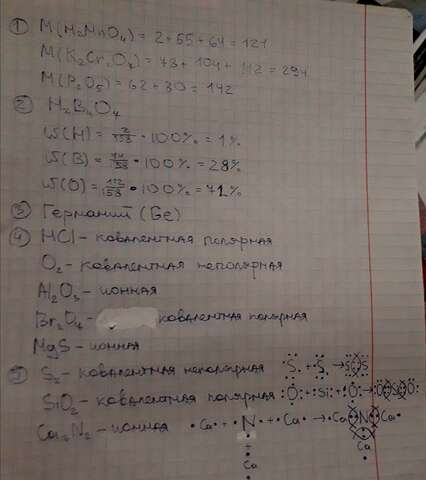 ① M(H₂MnO₄) = 2+55+64 = 121
M(K₂Cr₂O₇) = 78+104+112 = 294
M(P₂O₅) = 62+80 = 142
② H₂B₄O₇
ω(H) = 2/158 · 100% = 1%
ω(B) = 44/158 · 100% = 28%
ω(O) = 112/158 · 100% = 71%
③ Германий (Ge)
④ HCl - ковалентная полярная
O₂ - ковалентная неполярная
Al₂O₃ - ионная
Br₂O₄ - ковалентная полярная
MgS - ионная
⑤ S₂ - ковалентная неполярная S + S → S S
SiO₂ - ковалентная полярная O + Si + O → O Si O
Ca₃N₂ - ионная Ca + N + Ca → Ca N Ca
+
Ca Ca